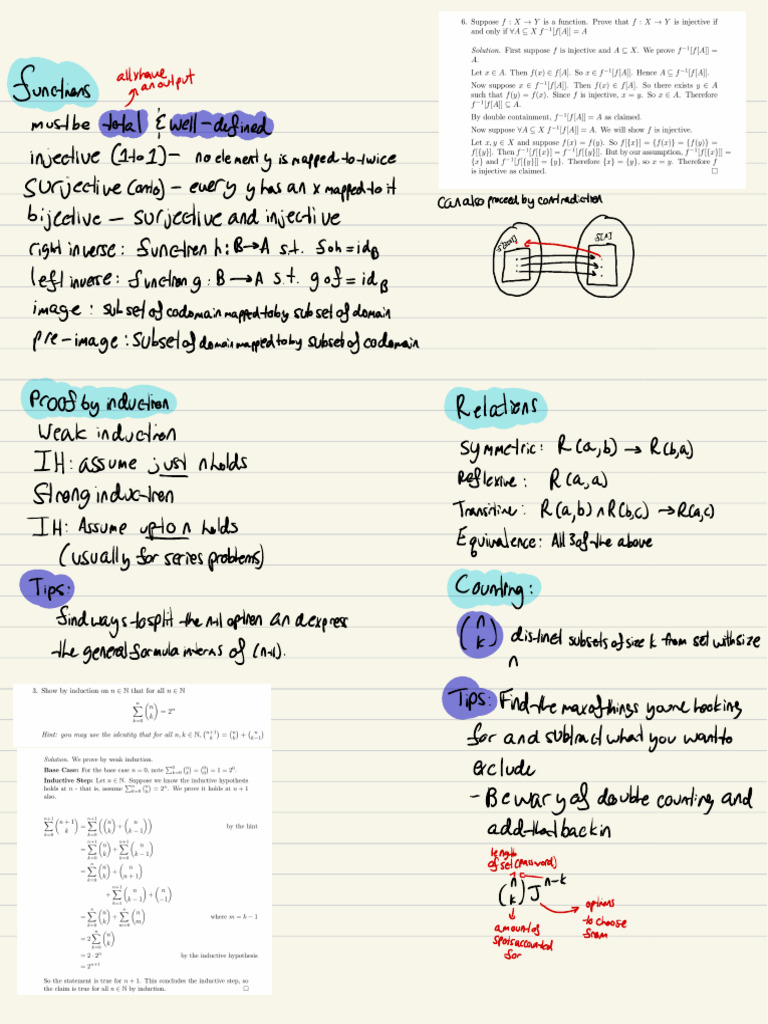 functions
all x have
an output
must be total & well-defined
injective (1 to 1) – no element y is mapped to twice
surjective (onto) – every y has an x mapped to it
bijective – surjective and injective
right inverse: function h: B→A s.t. f∘h = id_B
left inverse: function g: B→A s.t. g∘f = id_B
image: subset of codomain mapped to by subset of domain
pre-image: subset of domain mapped to by subset of codomain
6. Suppose f : X → Y is a function. Prove that f : X → Y is injective if
and only if ∀A ⊆ X f⁻¹[f[A]] = A
Solution. First suppose f is injective and A ⊆ X. We prove f⁻¹[f[A]] =
A.
Let x ∈ A. Then f(x) ∈ f[A]. So x ∈ f⁻¹[f[A]]. Hence A ⊆ f⁻¹[f[A]].
Now suppose x ∈ f⁻¹[f[A]]. Then f(x) ∈ f[A]. So there exists y ∈ A
such that f(y) = f(x). Since f is injective, x = y. So x ∈ A. Therefore
f⁻¹[f[A]] ⊆ A.
By double containment, f⁻¹[f[A]] = A as claimed.
Now suppose ∀A ⊆ X f⁻¹[f[A]] = A. We will show f is injective.
Let x, y ∈ X and suppose f(x) = f(y). So f[{x}] = {f(x)} = {f(y)} =
f[{y}]. Then f⁻¹[f[{x}]] = f⁻¹[f[{y}]]. But by our assumption, f⁻¹[f[{x}]] =
{x} and f⁻¹[f[{y}]] = {y}. Therefore {x} = {y}, so x = y. Therefore f
is injective as claimed. □
Can also proceed by contradiction
f[A]
Proof by induction
Weak induction
IH: assume just n holds
Strong induction
IH: Assume up to n holds
(usually for series problems)
Tips:
find ways to split the n+1 option and express
the general formula in terms of (n+1).
3. Show by induction on n ∈ ℕ that for all n ∈ ℕ
∑_{k=0}^{n} (n choose k) = 2ⁿ
Hint: you may use the identity that for all n, k ∈ ℕ, (n+1 choose k) = (n choose k) + (n choose k−1)
Solution. We prove by weak induction.
Base Case: For the base case n = 0, note ∑_{k=0}^{0} (0 choose k) = (0 choose 0) = 1 = 2⁰.
Inductive Step: Let n ∈ ℕ. Suppose we know the inductive hypothesis
holds at n - that is, assume ∑_{k=0}^{n} (n choose k) = 2ⁿ. We prove it holds at n + 1
also.
∑_{k=0}^{n+1} (n+1 choose k) = ∑_{k=0}^{n+1} ((n choose k) + (n choose k−1)) by the hint
= ∑_{k=0}^{n+1} (n choose k) + ∑_{k=0}^{n+1} (n choose k−1)
= ∑_{k=0}^{n} (n choose k) + (n choose n+1)
+ ∑_{k=1}^{n+1} (n choose k−1) + (n choose −1)
= ∑_{k=0}^{n} (n choose k) + ∑_{m=0}^{n} (n choose m) where m = k − 1
= 2 ∑_{k=0}^{n} (n choose k)
= 2 · 2ⁿ by the inductive hypothesis
= 2ⁿ⁺¹
So the statement is true for n + 1. This concludes the inductive step, so
the claim is true for all n ∈ ℕ by induction. □
Relations
Symmetric: R(a,b) → R(b,a)
Reflexive: R(a,a)
Transitive: R(a,b) ∧ R(b,c) → R(a,c)
Equivalence: All 3 of the above
Counting:
(n choose k) distinct subsets of size k from set with size
n
Tips: Find the max of things you're looking
for and subtract what you want to
exclude
- Be wary of double counting and
add that back in
length
of set (password)
(n choose k) J^{n-k}
options
to choose
from
amount of
spots accounted
for